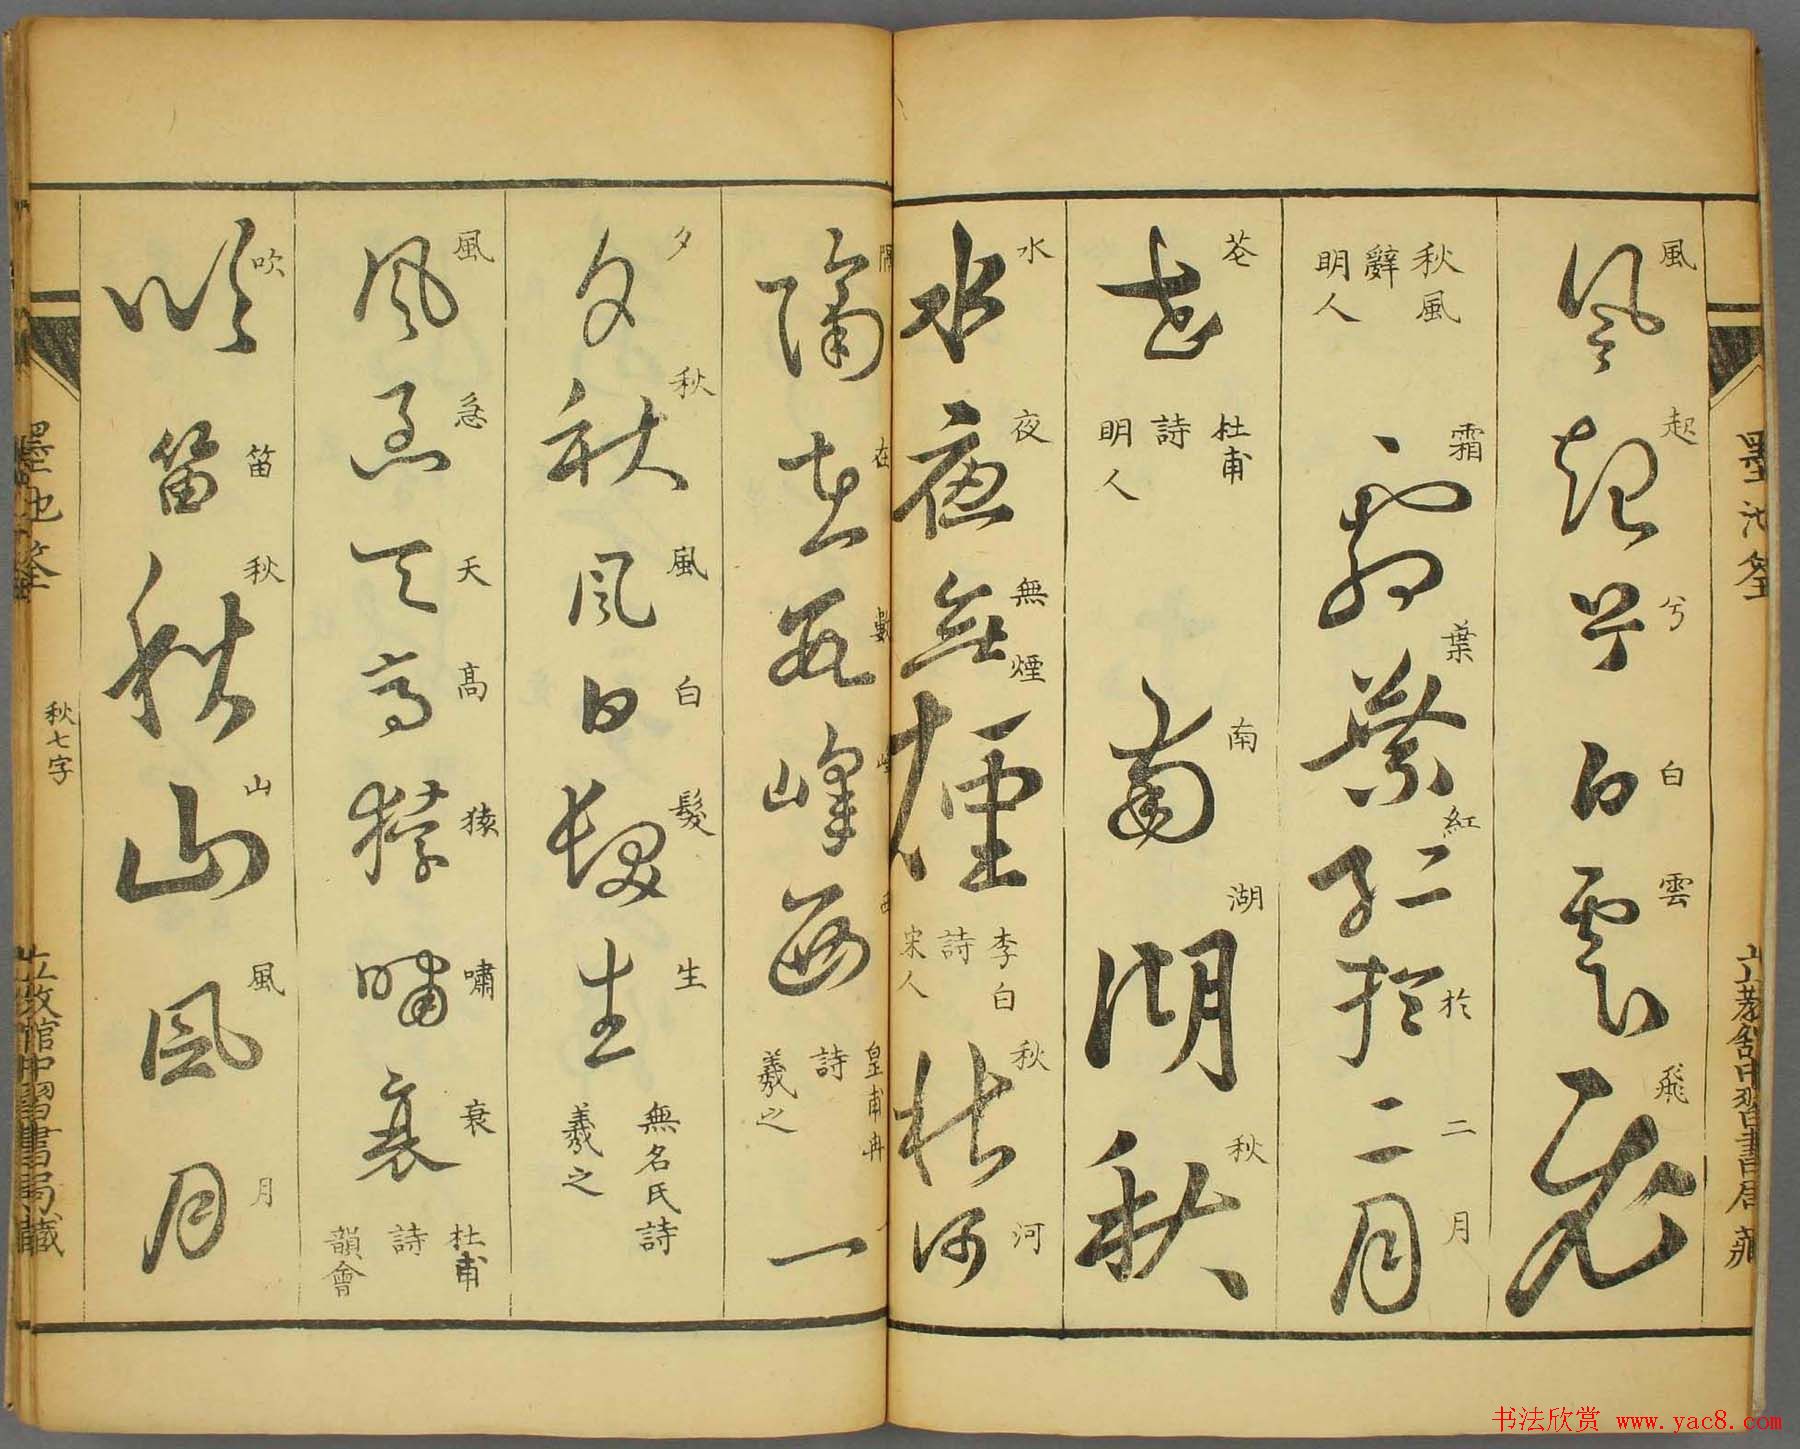 風起兮白雲飛
秋風
辭
明人
霜葉紅於二月
花
杜甫
詩
明人
南湖秋
水夜無煙
李白
詩
宋人
秋河
隔在數峰西
皇甫冉
詩
羲之
一
夕秋風白髮生
無名氏詩
羲之
風急天高猿嘯哀
杜甫
詩
韻會
吹笛秋山風月
秋七字
書法欣赏 www.yac8.com